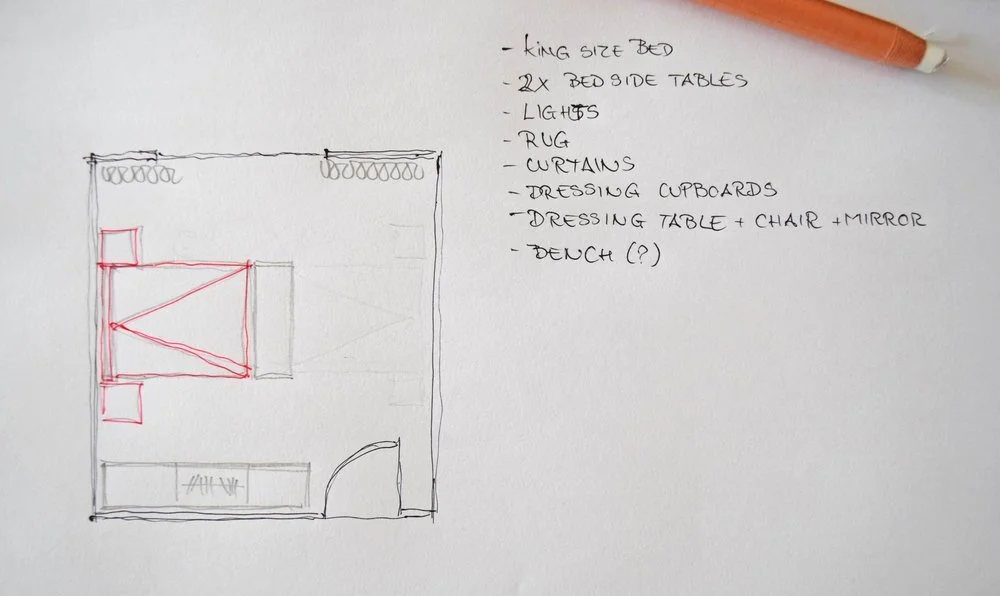 - KING SIZE BED
- 2X BEDSIDE TABLES
- LIGHTS
- RUG
- CURTAINS
- DRESSING CUPBOARDS
- DRESSING TABLE + CHAIR + MIRROR
- BENCH (?)